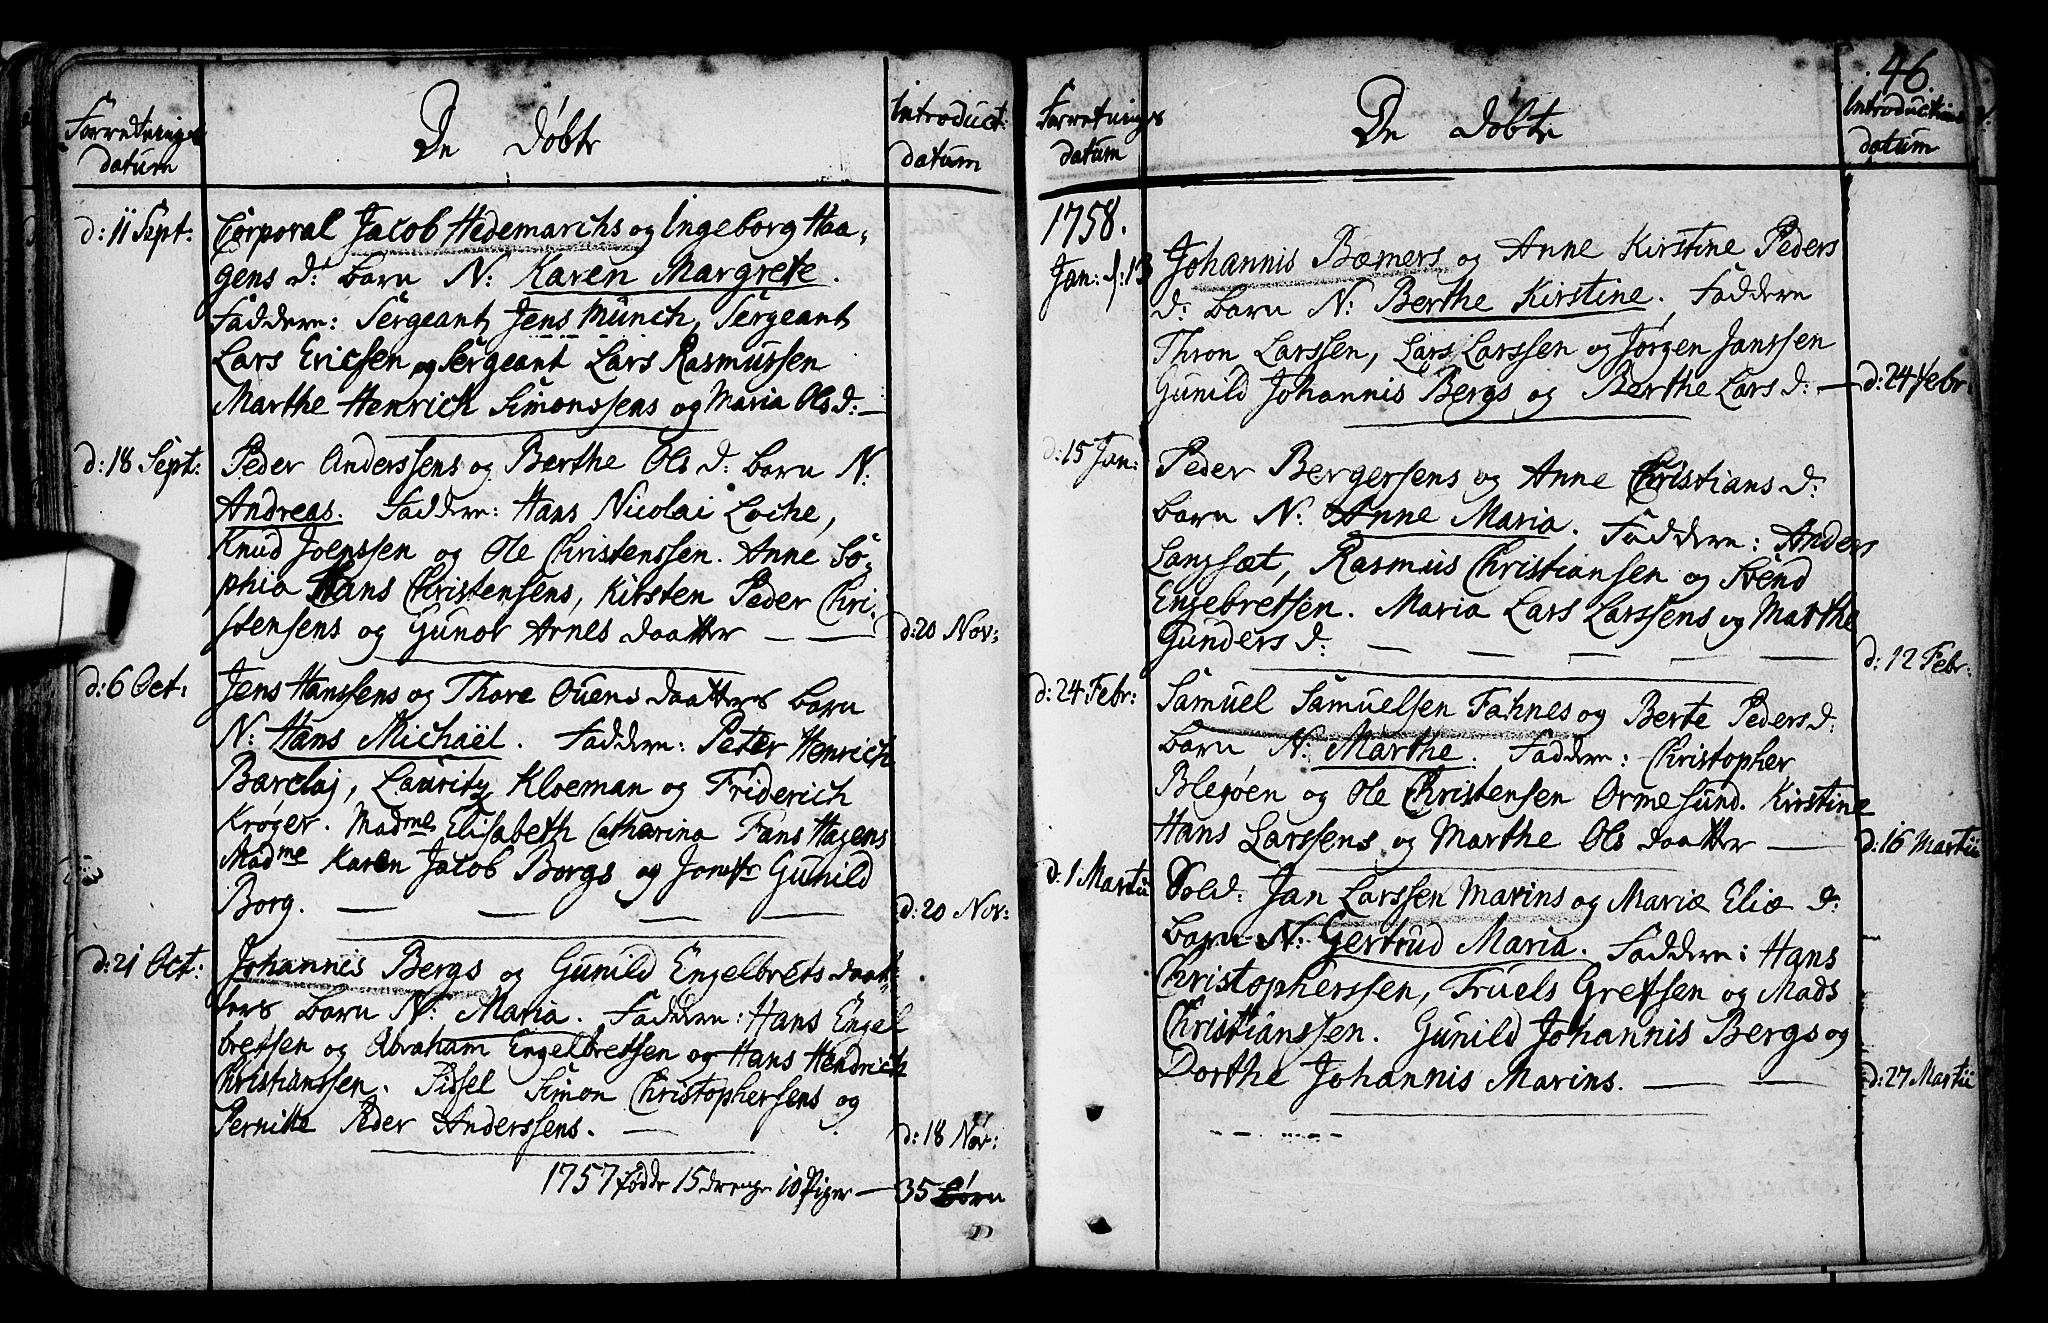 Forretnings datum
De Døbte
Introduct: datum
d: 11 Sept:
Corporal Jacob Hedemarchs og Ingeborg Haa-
gens d: barn N: Karen Margrete.
Faddere: Sergeant Jens Münch, Sergeant
Lars Ericsen og Sergeant Lars Rasmussen
Marthe Henrich Simonssens og Maria Ols d: —
d: 18 Sept:
Peder Anderssens og Berthe Ols d: barn N:
Andreas. Faddere: Hans Nicolai Loche,
Knud Joenssen og Ole Christenssen. Anne So-
phia Hans Christensens, Kirsten Peder Chri-
stensens og Gunor Arnes daatter — —
d: 20 Nov:
d: 6 Oct:
Jens Hanssens og Thore Ouens daatters barn
N: Hans Michaël. Faddere: Peter Henrich
Barclaj, Lauritz Kloeman og Friderich
Krøger. Madme Elisabeth Catharina Fans Hagens
Madme Karen Jacob Borgs og Jomfr Gunild
Borg. — — — —
d: 20 Nov:
d: 21 Oct:
Johannis Bergs og Gunild Engelbrets daat-
ters barn N: Maria. Faddere: Hans Engel
bretsen og Abraham Engelbretsen og Hans Hendrich
Christianssen. Sidsel Simon Christophersens og
Pernille Peder Anderssens. —
d: 18 Nov:
1757 fødde 15 drenge 10 Piger — 35 Børn
46.
Forretnings datum
De Døbte
Introductions datum
1758.
Jan: d: 13
Johannis Bæmers og Anne Kirstine Peders
d: barn N: Berthe Kirstine. Faddere
Thron Larssen, Lars Larssen og Jørgen Janssen
Gunild Johannis Bergs og Berthe Lars d: —
d: 24 Febr:
d: 15 Jan:
Peder Bergersens og Anne Christians d:
barn N: Anne Maria. Faddere: Anders
Langsæt, Rasmus Christiansen og Svend
Engebretsen. Maria Lars Larssens og Marthe
Gunders d: — — — — —
d: 12 Febr:
d: 24 Febr:
Samuel Samuelsen Fahnes og Berte Peders d:
barn N: Marthe. Faddere: Christopher
Blegøen og Ole Christensen Ormesund. Kirstine
Hans Larssens og Marthe Ols daatter —
d: 16 Martii
d: 1 Martii
Sold: Jan Larssen Marins og Mariæ Eliæ d:
barn N: Gertrud Maria. Faddere: Hans
Christopherssen, Truels Gretsen og Mads
Christianssen. Gunild Johannis Bergs og
Dorthe Johannis Marins. — —
d: 27 Martii